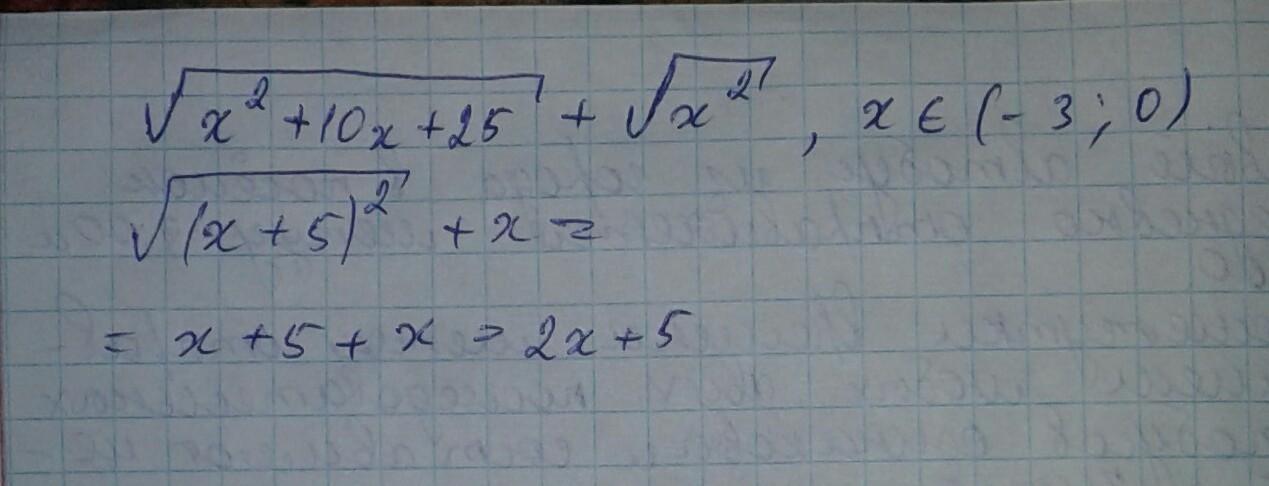 √(x² + 10x + 25) + √(x²), x ∈ (-3; 0)
√((x + 5)²) + x =
= x + 5 + x = 2x + 5